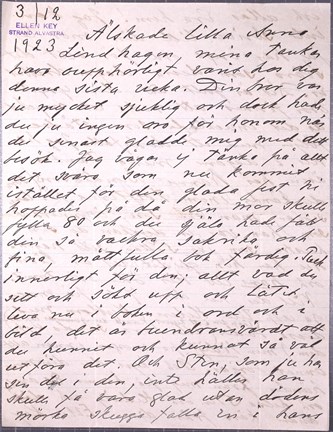 3/12
ELLEN KEY
STRAND ALVASTRA
1923
Älskade lilla Anna
Lindhagen, mina tankar
hava oupphörligt varit hos dig
denna sista vecka. Din bror var
ju mycket sjuklig och dock hade
du ju ingen oro för honom när
du senast gladde mig med ditt
besök. Jag vågar ej tänka på allt
det svåra som nu kommit
istället för den glada fest ni
hoppades på då din mor skulle
fylla 80 och du själv hade fått
din så vackra sakrika och
fina, måttfulla bok färdig. Tack
innerligt för den; allt vad du
sett och sökt upp och låtit
leva nu i boken i ord och i
bild det är beundransvärdt att
du hunnit och kunnat så väl
utföra det. Och Sten, som ju har
sin del i den, inte häller han
skulle få vara glad utan dödens
mörka skugga falla in i hans